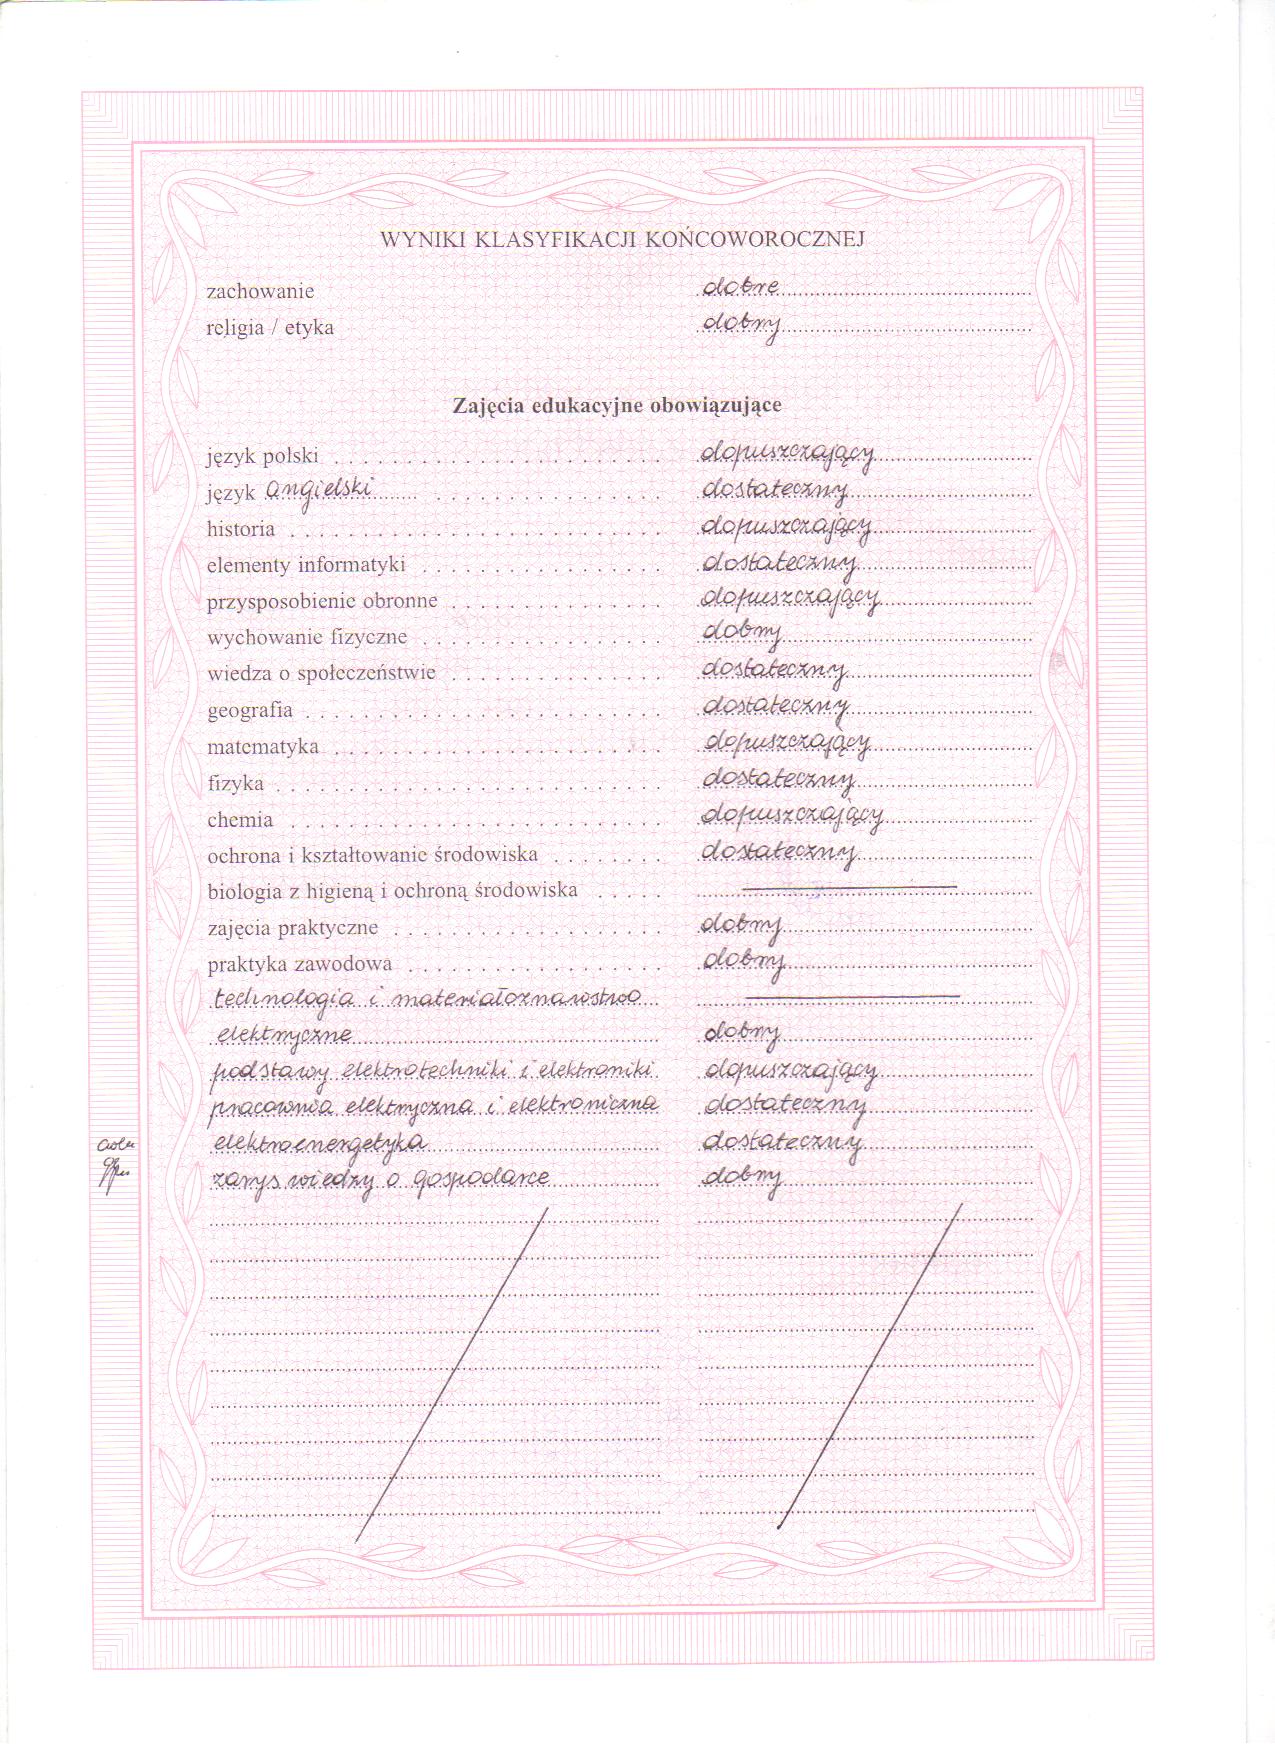 WYNIKI KLASYFIKACJI KOŃCOWOROCZNEJ
zachowanie dobre
religia / etyka dobry
Zajęcia edukacyjne obowiązujące
język polski dopuszczający
język angielski dostateczny
historia dopuszczający
elementy informatyki dostateczny
przysposobienie obronne dopuszczający
wychowanie fizyczne dobry
wiedza o społeczeństwie dostateczny
geografia dostateczny
matematyka dopuszczający
fizyka dostateczny
chemia dopuszczający
ochrona i kształtowanie środowiska dostateczny
biologia z higieną i ochroną środowiska
zajęcia praktyczne dobry
praktyka zawodowa dobry
technologia i materiałoznawstwo
elektryczne dobry
podstawy elektrotechniki i elektroniki dopuszczający
pracownia elektryczna i elektroniczna dostateczny
elektroenergetyka dostateczny
zarys wiedzy o gospodarce dobry